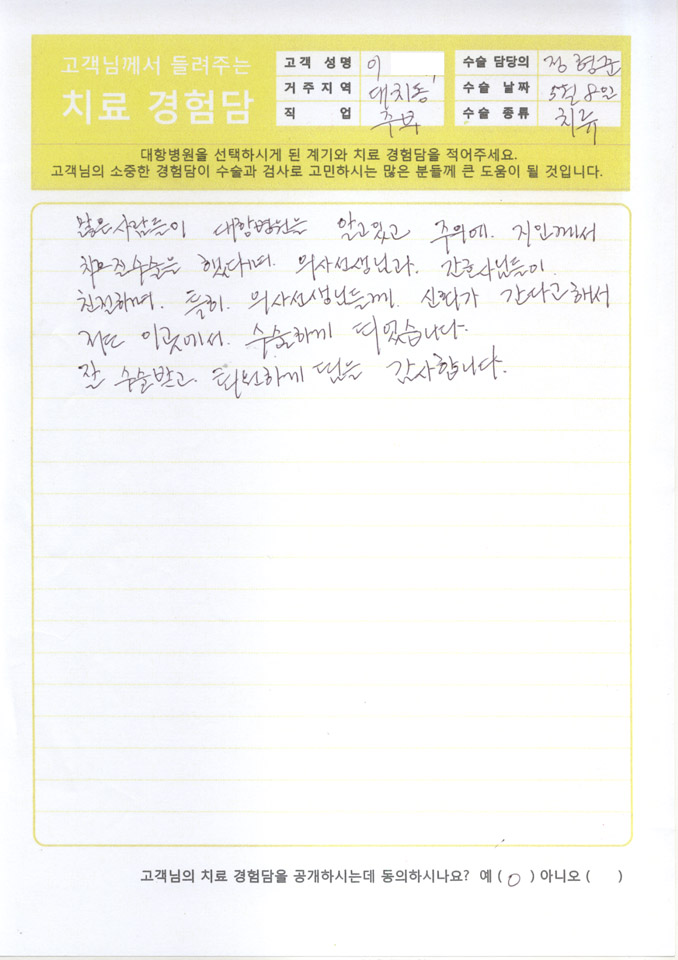 고객님께서 들려주는
치료 경험담
고객 성명 이
거주지역 대치동
직 업 주부
수술 담당의 정형준
수술 날짜 5월 8일
수술 종류 치루
대항병원을 선택하시게 된 계기와 치료 경험담을 적어주세요.
고객님의 소중한 경험담이 수술과 검사로 고민하시는 많은 분들께 큰 도움이 될 것입니다.
많은사람들이 대항병원을 알고있고 주위에. 지인께서
수술을 했다며. 의사선생님과. 간호사님들이.
친절하며. 특히. 의사선생님들께. 신뢰가 간다고해서
저도 이곳에서. 수술하게 되었습니다.
잘 수술받고. 퇴원하게 됨을 감사합니다.
고객님의 치료 경험담을 공개하시는데 동의하시나요? 예 ( O ) 아니오 ( )